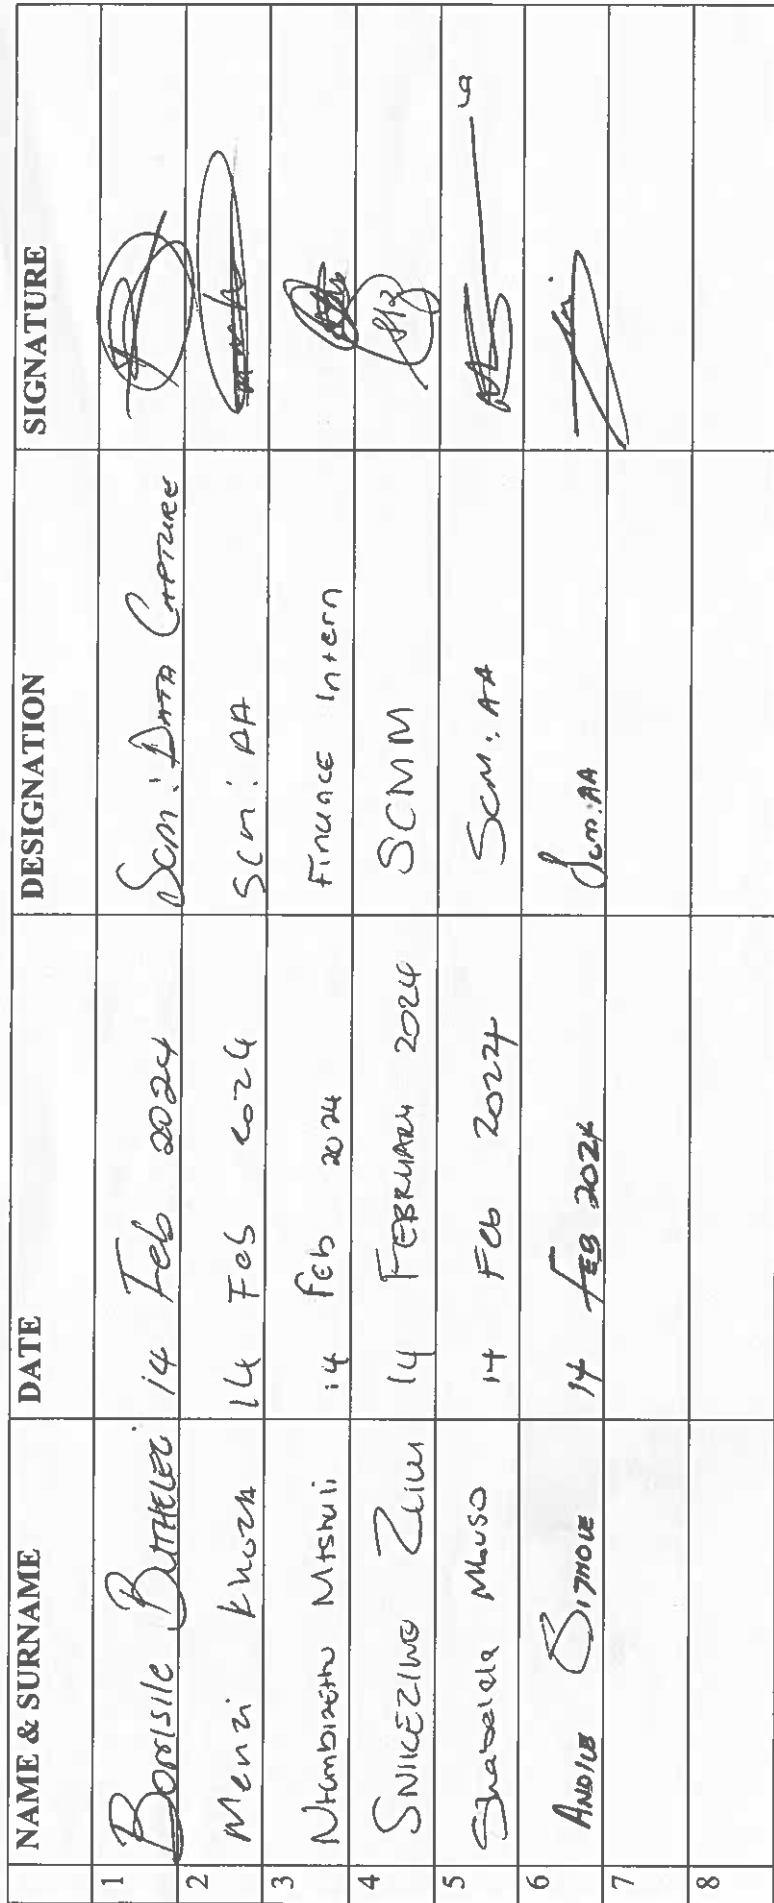 NAME & SURNAME DATE DESIGNATION SIGNATURE
1 Bonisile Buthelezi 14 Feb 2024 Scm: Data Capture
2 Menzi Khoza 14 Feb 2024 SCM: AA
3 Mtshali 14 Feb 2024 Finance Intern
4 SNIKEZIWE Zulu 14 FEBRUARY 2024 SCMM
5 Shabalala Mbuso 14 Feb 2024 SCM: AA
6 ANDILE SITHOLE 14 FEB 2024 Scm:AA
7
8